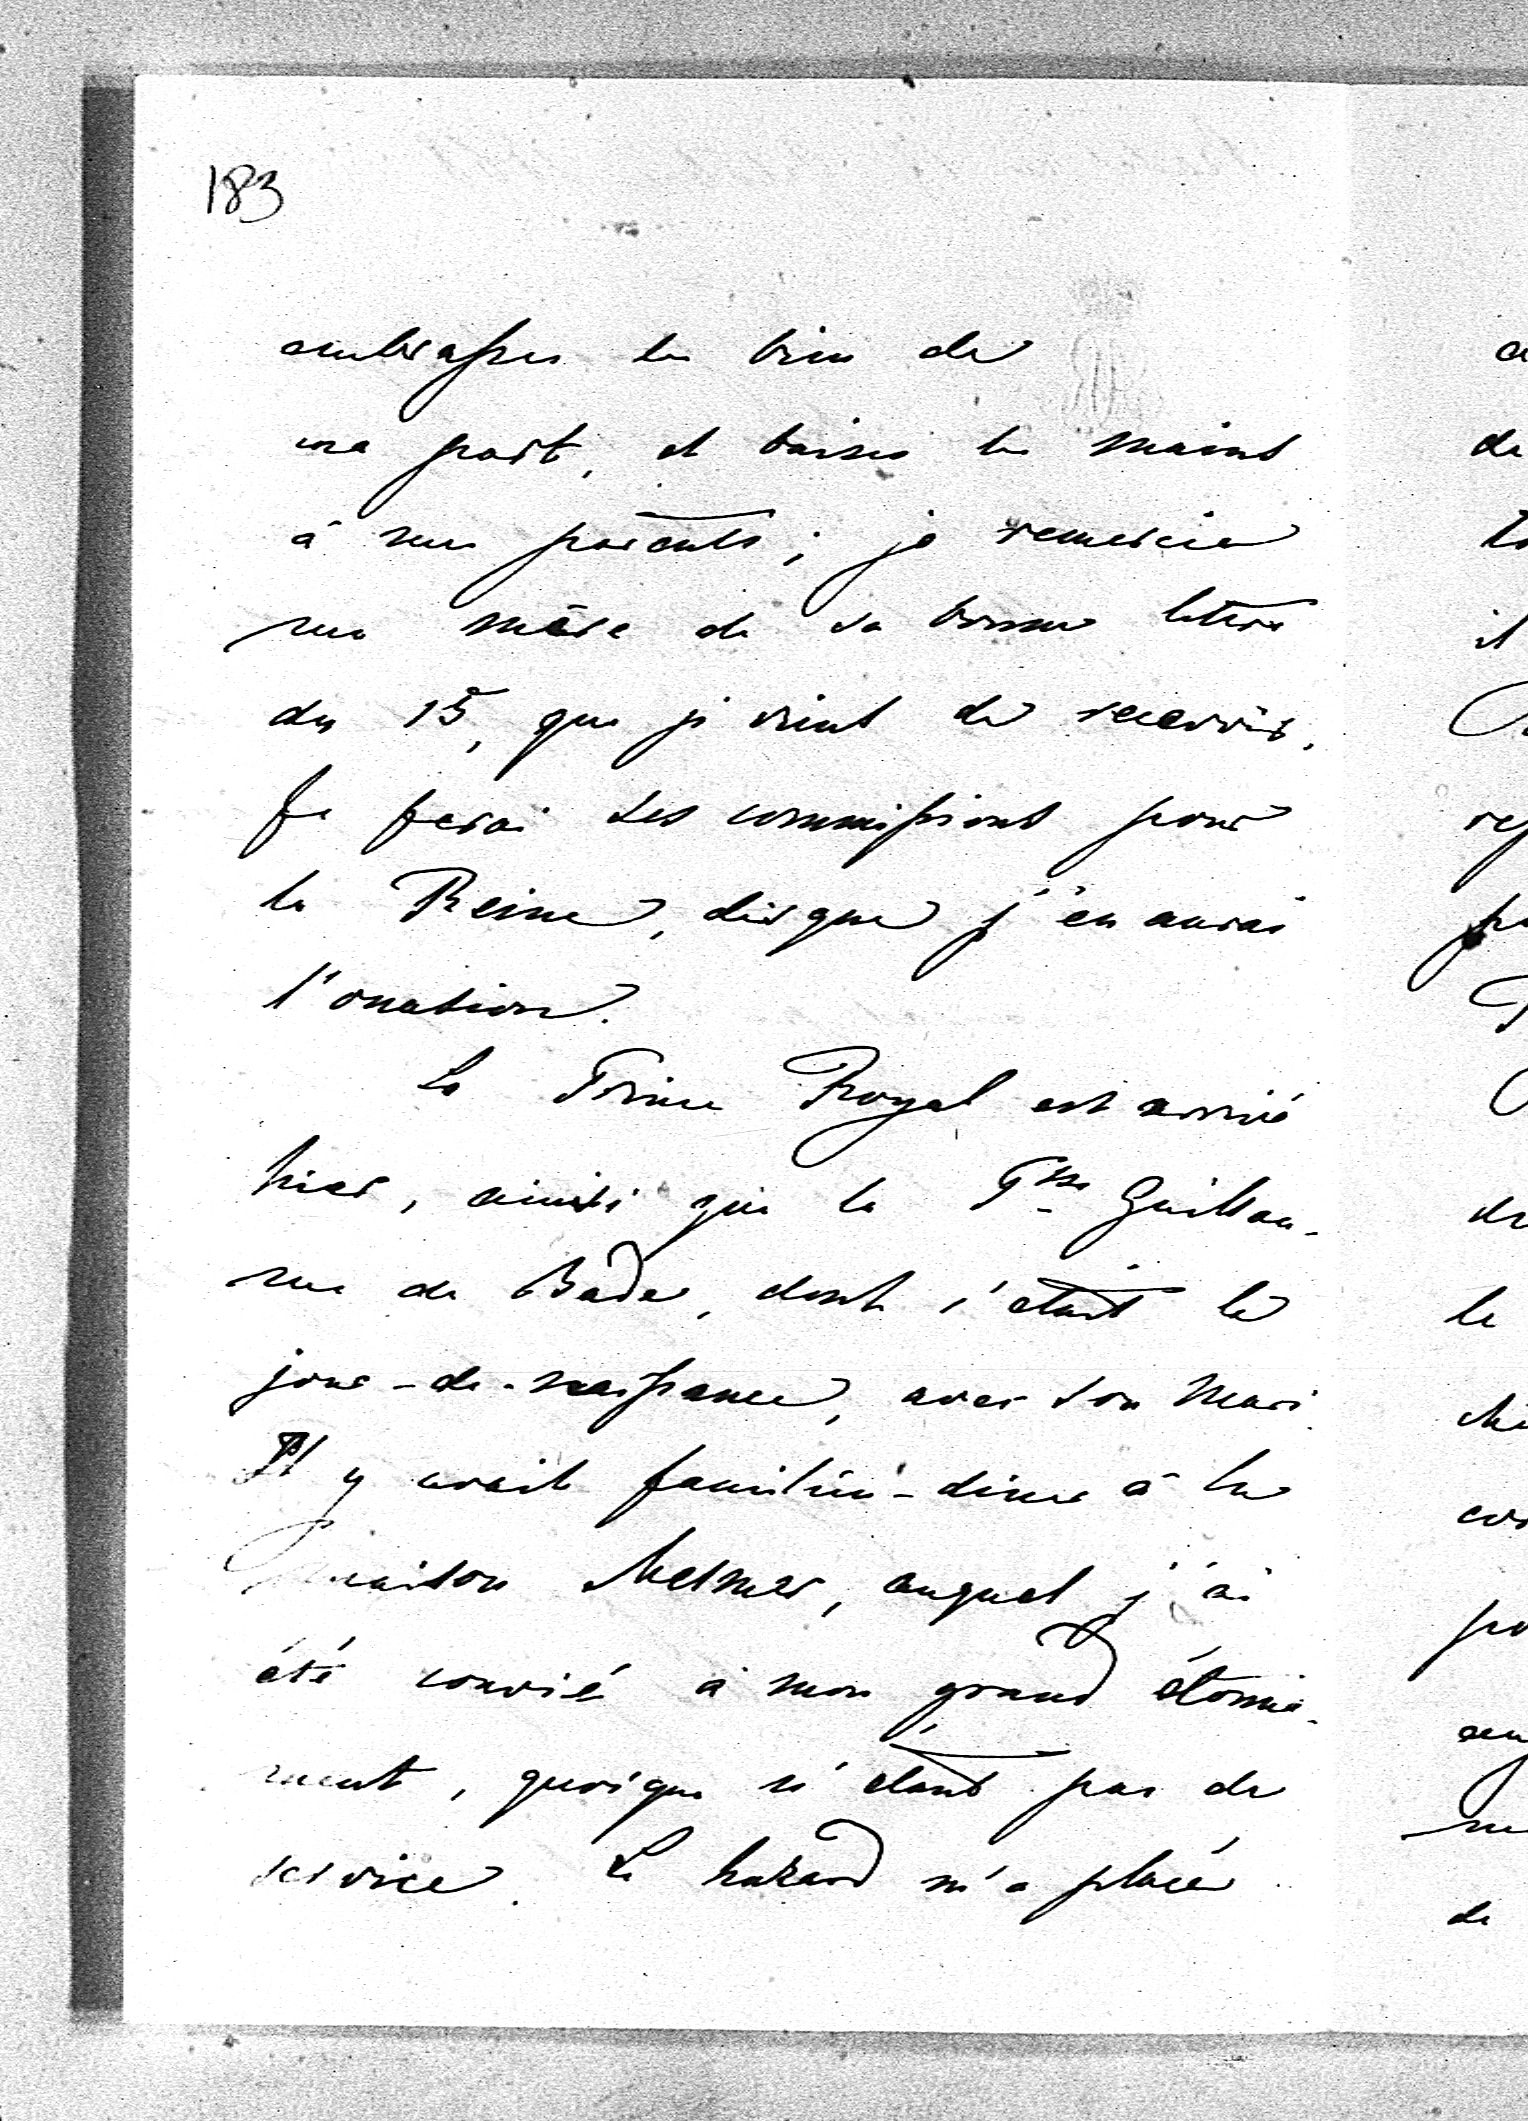 183
embrasses les bien de
ma part, et baises les mains
à mes parents; je remercie
ma mère de sa bonne lettre
du 15, que je vient de recevoir.
Je ferai ses commissions pour
la Reine, dèsque j'en aurai
l'occasion.
Le Prince Royal est arrivé
hier, ainsi que la Psse Guillau-
me de Bade, dont c'était le
jour-de-naissance, avec son mari.
Il y avait familien-diner à la
maison Messmer, auquel j'ai
été convié à mon grand étonne-
ment, quoique n'étant pas de
service. Le hazard m'a placé